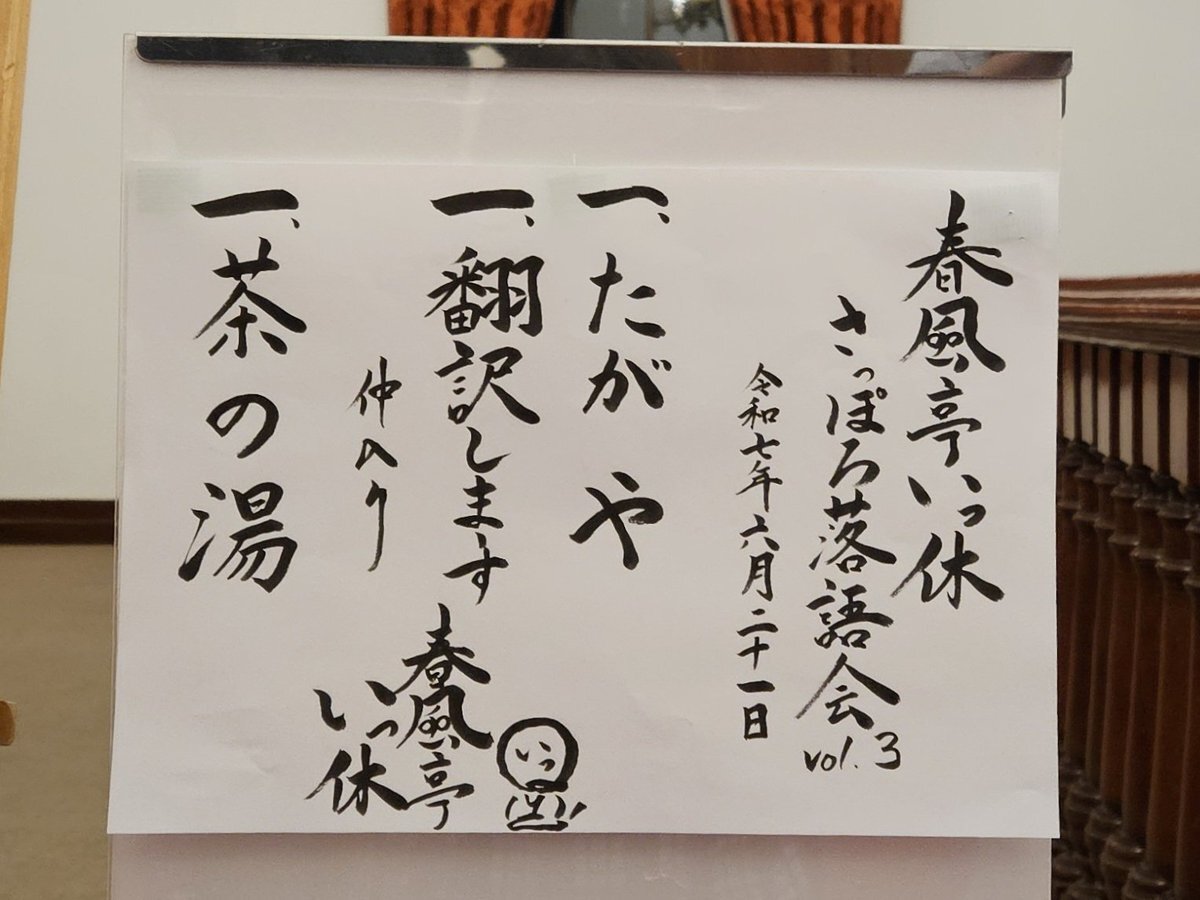 春風亭いっ休
さっぽろ落語会 vol.3
令和七年六月二十一日
一、たがや
一、翻訳します
仲入り
一、茶の湯
春風亭
いっ休
いっ